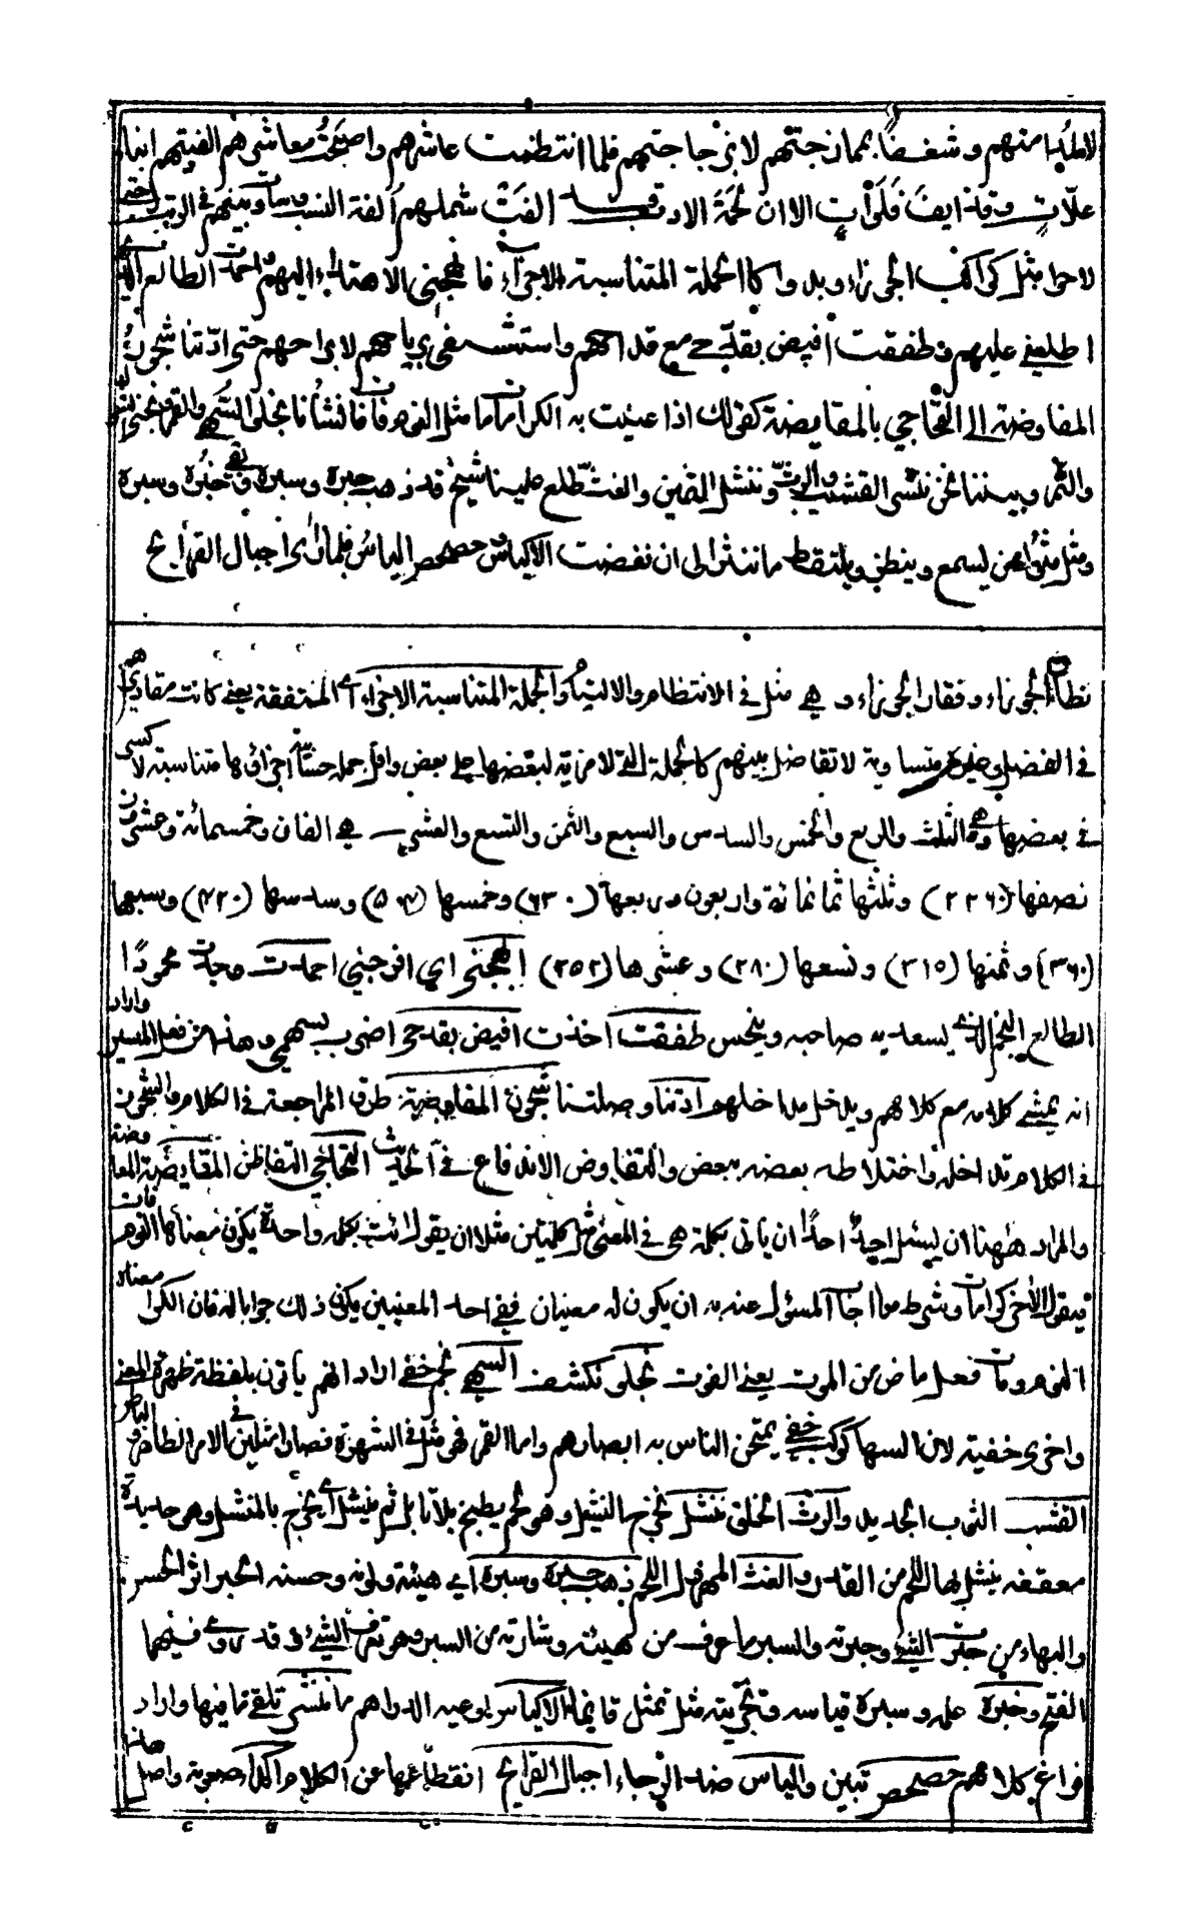 لاملهامنهم وشغفاً بممازجتهم لا بزجاجتهم فلما انتظمت عاشرهم واضحت معاشرهم الفيتهم ابناء
علّات وقذائف فلوات الا ان لحمة الادب قد الفت شملهم الفة النسب وساوت بينهم في الرتب حتى
لاحوا مثل كواكب الجوزاء وبدوا كالجملة المتناسبة الاجزاء فابهجني الاهتداء اليهم واحمدت الطالع الذي
اطلعني عليهم وطفقت افيض بقدحي مع قداحهم واستشفي برياحهم لا براحهم حتى ادّتنا شجون
المفاوضة الى التحاجي بالمقايضة كقولك اذا عنيت به الكرامات ما مثل النوم فات فانشأنا نجلو السهى والقمر ونجني الشوك
والثمر وبيننا نحن ننشر القشيب والرث وننشل السمين والغث طلع علينا شيخ قد ذهب حبره وسبره وبقي خبره وسبره
ومثل مثول من يسمع وينظر ويلتقط ما ننثر الى ان نفضت الاكياس وحصحص الياس فلما راى اجبال القرائح
نطاق الجوزاء وفقار الجوزاء وهي مثل في الانتظام والالتيام والجملة المتناسبة الاجزاء اي المتفقة يعني كانت مقاديرهم
في الفضل متساوية لا تفاضل بينهم كالجملة التي لا مزية لبعضها على بعض واقل جملة اجزاؤها متناسبة لا كسر
في بعضها وهي الثلث والربع والخمس والسدس والسبع والثمن والتسع والعشر هي الفان وخمسمائة وعشرون
نصفها (١٢٦٠) وثلثها ثمانمائة واربعون وربعها (٦٣٠) وخمسها (٥٠٤) وسدسها (٤٢٠) وسبعها
(٣٦٠) وثمنها (٣١٥) وتسعها (٢٨٠) وعشرها (٢٥٢) ابهجني اي افرحني احمدت وجدت محمودًا
الطالع النجم الذي يسعد به صاحبه وينحس طفقت اخذت افيض بقدحي اضرب بسهمي وهذا من فعل الميسر واراد
انه يمشي كلامه مع كلامهم ويدخل مداخلهم ادتنا وصلتنا شجون المفاوضة طرق المراجعة في الكلام والشجون
في الكلام تداخله واختلاطه بعضه ببعض والتفاوض الاندفاع في الحديث التحاجي التفاطن المقايضة المعاوضة
والمراد ههنا ان يسئل احد احدًا ان ياتي بكلمة هي في المعنى مثل كلمتين مثلا ان يقول ائت بكلمة واحدة يكون معناها النوم فات
فيقول الاخر كرامات وشرط ما اجاب المسئول عنه به ان يكون له معنيان ففي احد المعنيين يكون ذلك جوابا له فان الكرا معناه
النوم ومات فعل ماض من الموت يعني الفوت نجلو نكشف السهى نجم خفي اراد انهم ياتون بلفظة ظاهرة المعنى
واخرى خفية لان السها كوكب خفي يمتحن الناس به ابصارهم واما القمر فهو مثل في الشهرة فصارا مثلين في الامر الظاهر والباطن
القشب الثوب الجديد والرث الخلق ننشل نخرج النشيل وهو لحم يطبخ بلا توابل ثم ينشل اي يخرج بالمنشل وهو حديدة
معقفة ينشل بها اللحم من القدر والغث المهزول اللحم ذهب حبره وسبره اي هيئته ولونه وحسنه الحبر اثر الحسن
والبهاء من حبرت الشيء وحبرته والسبر ما عرف من هيئته وشارته من السبر وهو تعرف الشيء وقد روي فيهما
الفتح وخبره علمه وسبره قياسه وتجربته مثل تمثل قائما الاكياس اوعية الدراهم ما ننثر نلقي ما فيها واراد
فراغ كلامهم حصحص تبين والياس ضد الرجاء اجبال القرائح انقطاعها عن الكلام اكداء صعوبة واصل